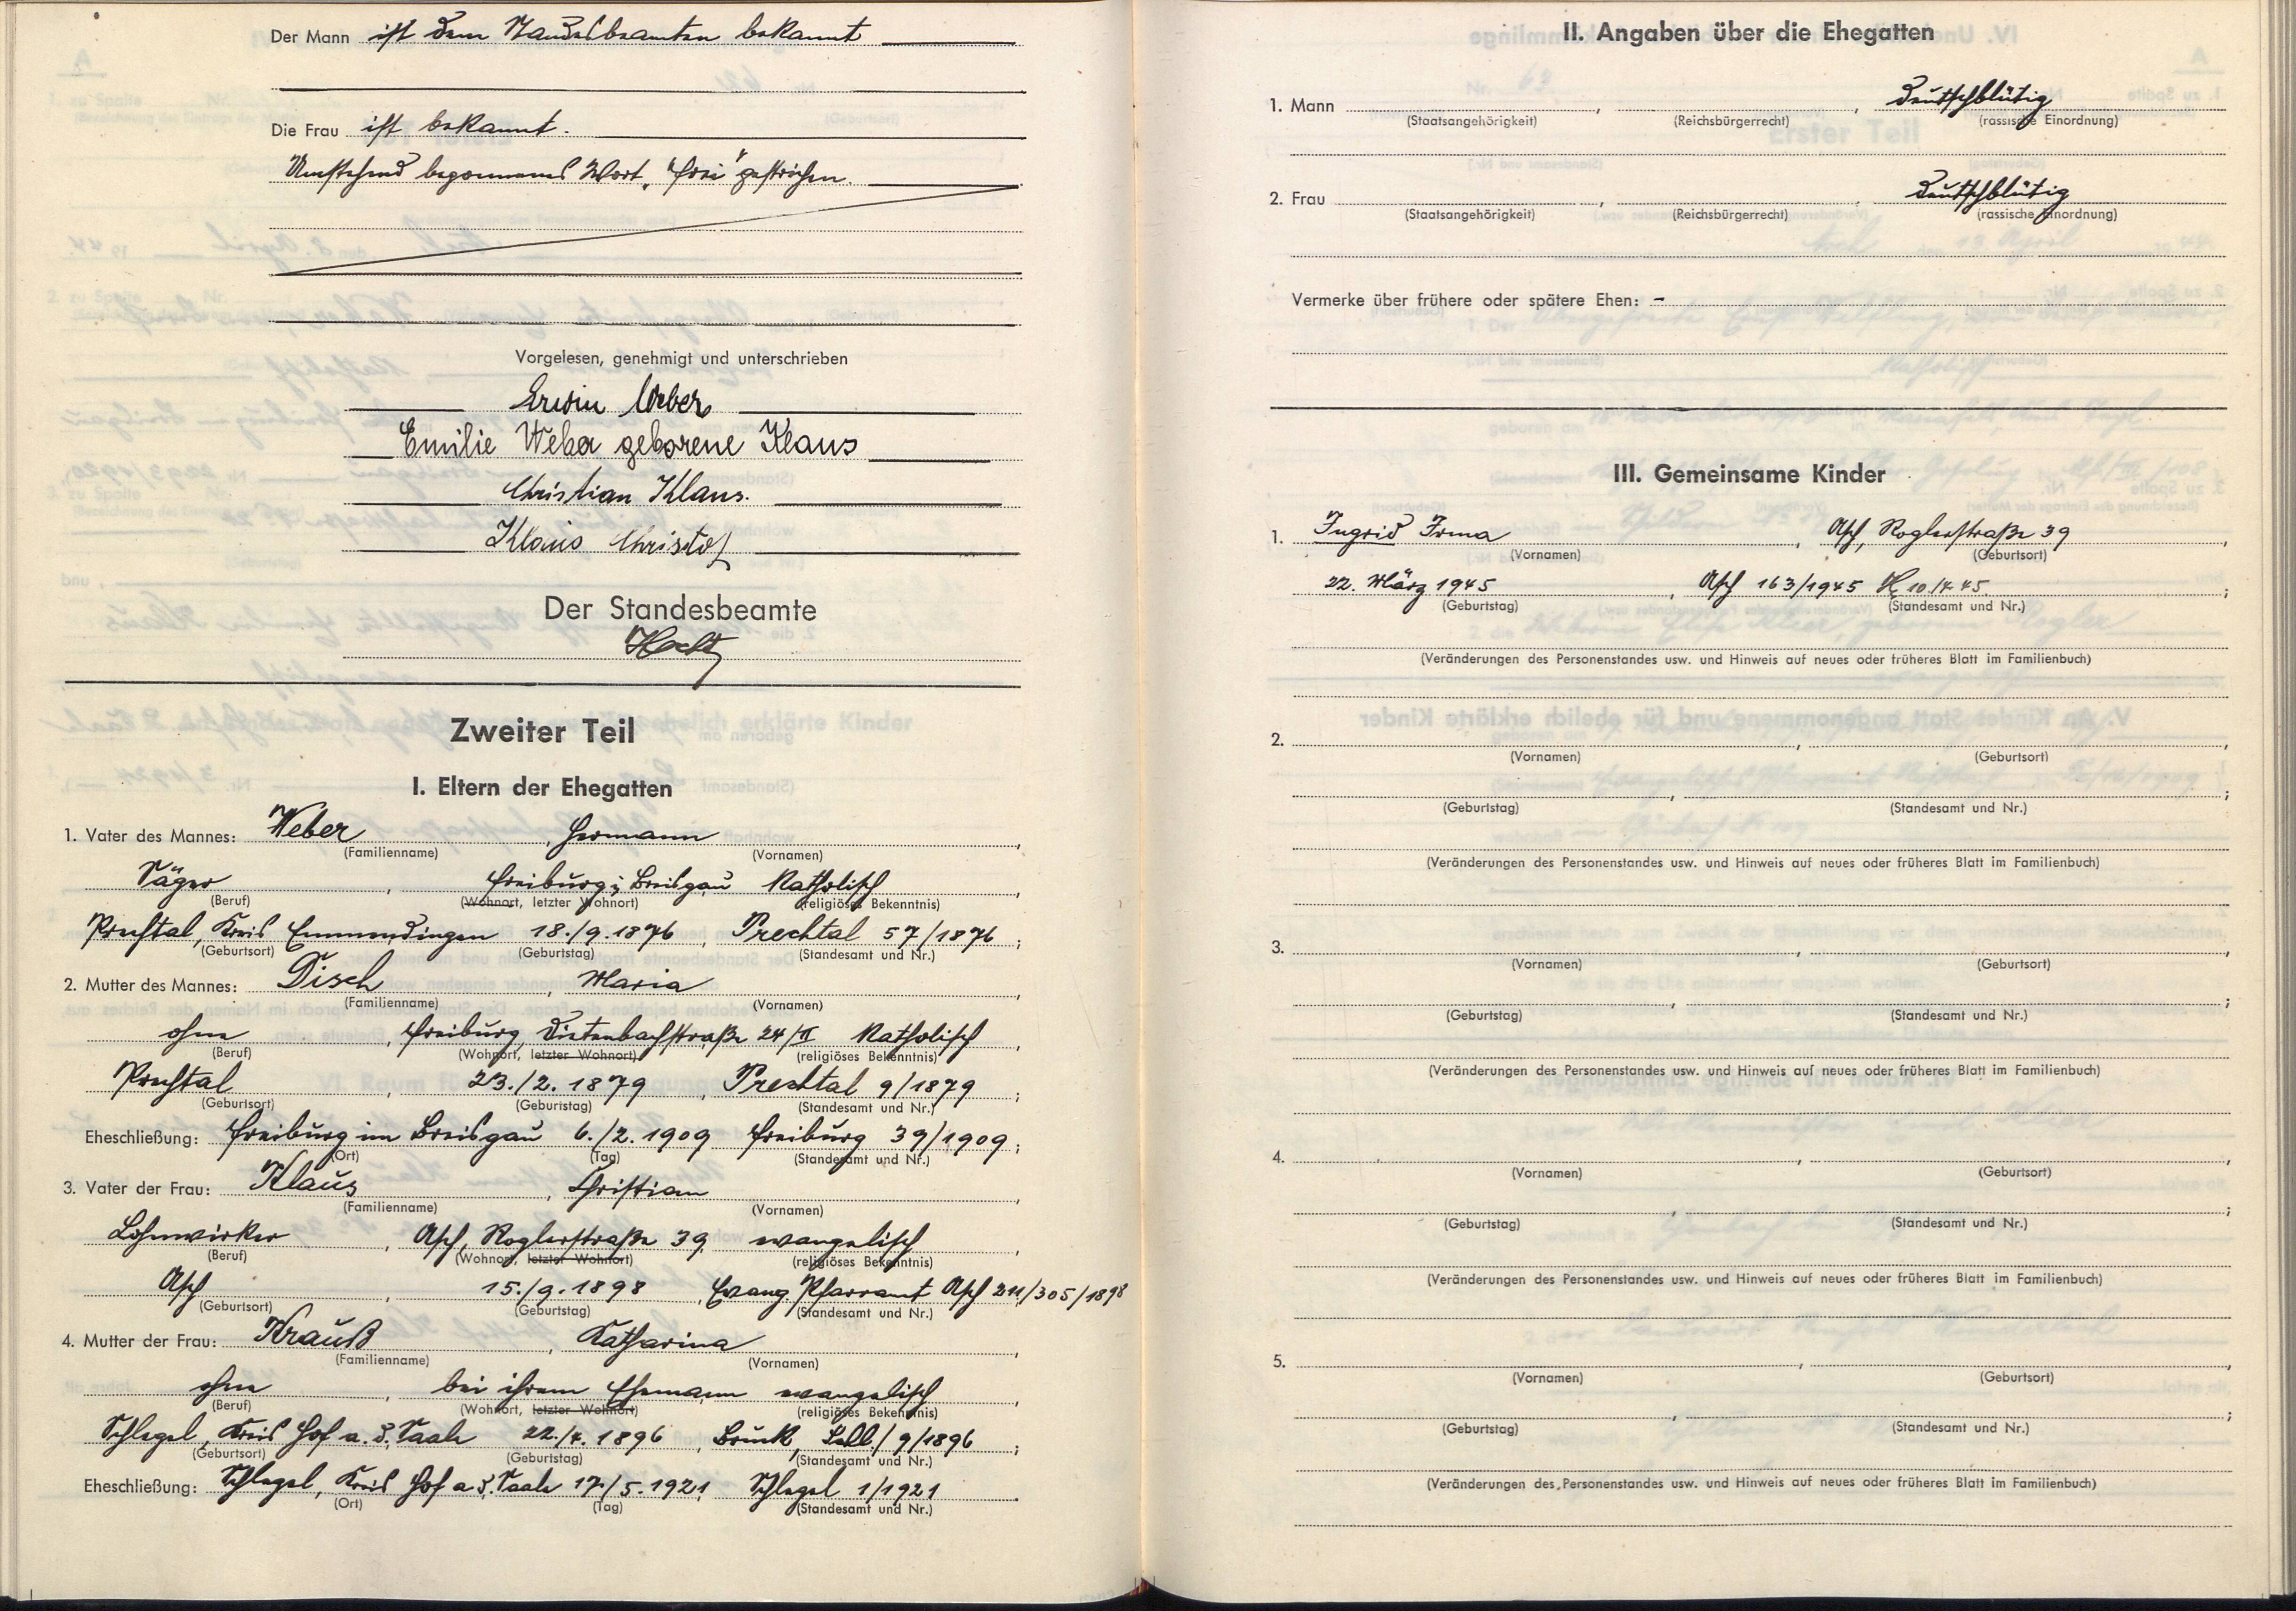 Der Mann ist dem Standesbeamten bekannt
Die Frau ist bekannt.
Umstehend begonnenes Wort „frei“ gestrichen.
Vorgelesen, genehmigt und unterschrieben
Erwin Weber
Emilie Weber geborene Klaus
Christian Klaus.
Klaus Christof
Der Standesbeamte
Zweiter Teil
I. Eltern der Ehegatten
1. Vater des Mannes: Weber, Hermann
(Familienname) (Vornamen)
Säger, Freiburg i. Breisgau Katholisch,
(Beruf) (Wohnort, letzter Wohnort) (religiöses Bekenntnis)
Prechtal, Kreis Emmendingen 18./9.1876, Prechtal 57/1876;
(Geburtsort) (Geburtstag) (Standesamt und Nr.)
2. Mutter des Mannes: Disch, Maria,
(Familienname) (Vornamen)
ohne, Freiburg, Dietenbachstraße 24/II Katholisch,
(Beruf) (Wohnort, letzter Wohnort) (religiöses Bekenntnis)
Prechtal, 23./2.1879, Prechtal 9/1879;
(Geburtsort) (Geburtstag) (Standesamt und Nr.)
Eheschließung: Freiburg im Breisgau 6./2.1909 Freiburg 39/1909;
(Ort) (Tag) (Standesamt und Nr.)
3. Vater der Frau: Klaus, Christian,
(Familienname) (Vornamen)
Lohnwirker, Asch, Roglerstraße 39 evangelisch,
(Beruf) (Wohnort, letzter Wohnort) (religiöses Bekenntnis)
Asch, 15./9.1898, Evang. Pfarramt Asch 211/305/1898
(Geburtsort) (Geburtstag) (Standesamt und Nr.)
4. Mutter der Frau: Krauß, Katharina,
(Familienname) (Vornamen)
ohne, bei ihrem Ehemann evangelisch,
(Beruf) (Wohnort, letzter Wohnort) (religiöses Bekenntnis)
Schlegel, Kreis Hof a.d. Saale 22./4.1896, 9/1896;
(Geburtsort) (Geburtstag) (Standesamt und Nr.)
Eheschließung: Schlegel, Kreis Hof a.d. Saale 17./5.1921, Schlegel 1/1921
(Ort) (Tag) (Standesamt und Nr.)
II. Angaben über die Ehegatten
1. Mann, , deutschblütig
(Staatsangehörigkeit) (Reichsbürgerrecht) (rassische Einordnung)
2. Frau, , deutschblütig
(Staatsangehörigkeit) (Reichsbürgerrecht) (rassische Einordnung)
Vermerke über frühere oder spätere Ehen: –
III. Gemeinsame Kinder
1. Ingrid Irma, Asch, Roglerstraße 39,
(Vornamen) (Geburtsort)
22. März 1945, Asch 163/1945 10/4.45;
(Geburtstag) (Standesamt und Nr.)
(Veränderungen des Personenstandes usw. und Hinweis auf neues oder früheres Blatt im Familienbuch)
2.
(Vornamen) (Geburtsort)
(Geburtstag) (Standesamt und Nr.)
(Veränderungen des Personenstandes usw. und Hinweis auf neues oder früheres Blatt im Familienbuch)
3.
(Vornamen) (Geburtsort)
(Geburtstag) (Standesamt und Nr.)
(Veränderungen des Personenstandes usw. und Hinweis auf neues oder früheres Blatt im Familienbuch)
4.
(Vornamen) (Geburtsort)
(Geburtstag) (Standesamt und Nr.)
(Veränderungen des Personenstandes usw. und Hinweis auf neues oder früheres Blatt im Familienbuch)
5.
(Vornamen) (Geburtsort)
(Geburtstag) (Standesamt und Nr.)
(Veränderungen des Personenstandes usw. und Hinweis auf neues oder früheres Blatt im Familienbuch)